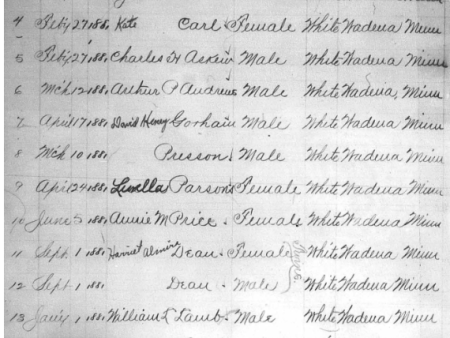 4 Feby 27 188 Kate Carl Female White Wadena Minn
5 Feby 27 188 Charles H Askew Male White Wadena Minn
6 Mch 12 188 Arthur P Andrews Male White Wadena, Minn
7 April 17 188 David Henry Gorham Male White Wadena Minn
8 Mch 10 188 Presson Male White Wadena Minn
9 Apr 24 188 Luella Parsons Female White Wadena Minn
10 June 5 188 Annie M Price Female White Wadena Minn
11 Sept. 1 188 Harriet Almira Dean Female White Wadena Minn
12 Sept 1 188 Dean Male White Wadena Minn
13 1 188 William L Lamb Male White Wadena Minn